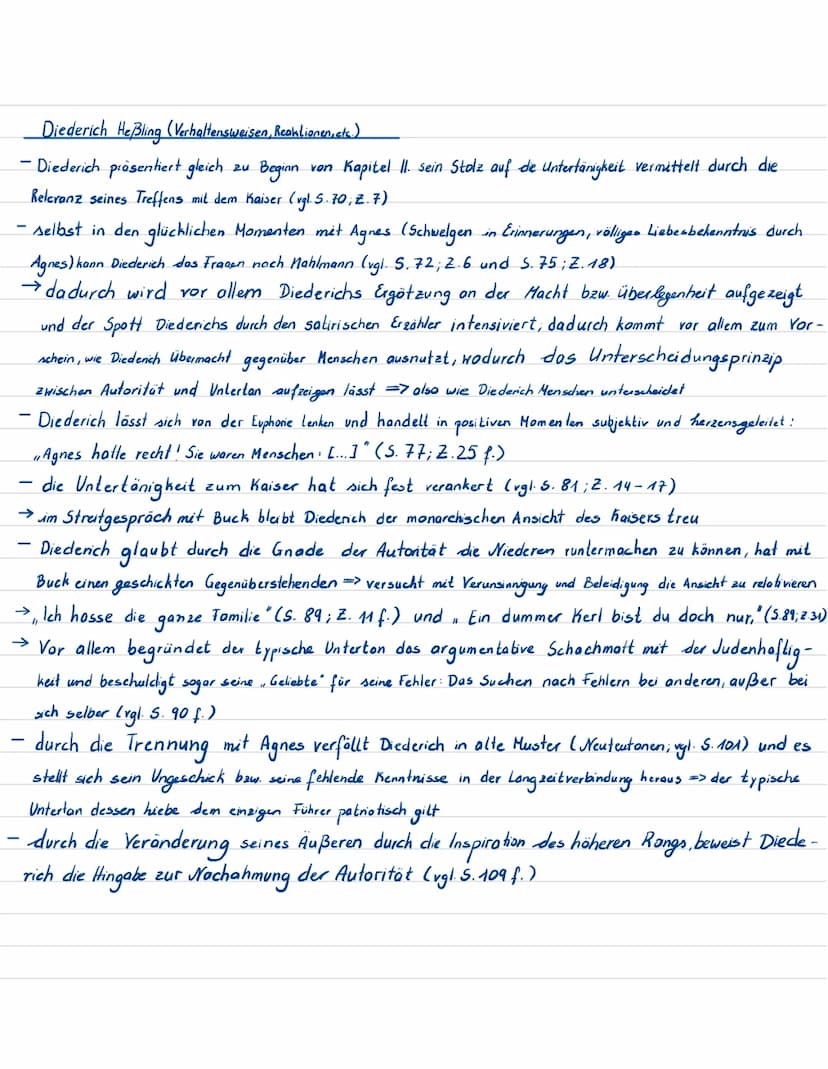 Diederich Heßling (Verhaltensweisen, Reaktionen, etc.)
- Diederich präsentiert gleich zu Beginn von Kapitel II. sein Stolz auf de Untertänigkeit vermittelt durch die
Relevanz seines Treffens mit dem Kaiser (vgl. S. 70; Z. 7)
- selbst in den glücklichen Momenten mit Agnes (Schwelgen in Erinnerungen, völliges Liebesbekenntnis durch
Agnes) kann Diederich das Fragen nach Mahlmann (vgl. S. 72; Z. 6 und S. 75; Z. 18)
→ dadurch wird vor allem Diederichs Ergötzung an der Macht bzw. Überlegenheit aufgezeigt
und der Spott Diederichs durch den satirischen Erzähler intensiviert, dadurch kommt vor allem zum Vor-
schein, wie Diederich Übermacht gegenüber Menschen ausnutzt, wodurch das Unterscheidungsprinzip
zwischen Autorität und Untertan aufzeigen lässt => also wie Diederich Menschen unterscheidet
- Diederich lässt sich von der Euphorie lenken und handelt in positiven Momenten subjektiv und herzensgeleitet:
„Agnes hatte recht! Sie waren Menschen. [...]" (S. 77; Z. 25 f.)
- die Untertänigkeit zum Kaiser hat sich fest verankert (vgl. S. 81; Z. 14-17)
→ im Streitgespräch mit Buck bleibt Diederich der monarchischen Ansicht des Kaisers treu
- Diederich glaubt durch die Gnade der Autorität die Niederen runtermachen zu können, hat mit
Buck einen geschickten Gegenüberstehenden => versucht mit Verunsinnigung und Beleidigung die Ansicht zu relativieren
→ „Ich hasse die ganze Familie" (S. 89; Z. 11 f.) und „Ein dummer Kerl bist du doch nur," (S. 89; Z. 31)
→ Vor allem begründet der typische Unterton das argumentative Schachmatt mit der Judenhaftig-
keit und beschuldigt sogar seine „Geliebte" für seine Fehler: Das Suchen nach Fehlern bei anderen, außer bei
sich selber (vgl. S. 90 f.)
- durch die Trennung mit Agnes verfällt Diederich in alte Muster (Neuteutonen; vgl. S. 101) und es
stellt sich sein Ungeschick bzw. seine fehlende Kenntnisse in der Langzeitverbindung heraus => der typische
Untertan dessen Liebe dem einzigen Führer patriotisch gilt
- durch die Veränderung seines Äußeren durch die Inspiration des höheren Rangs, beweist Diede-
rich die Hingabe zur Nachahmung der Autorität (vgl. S. 109 f.)